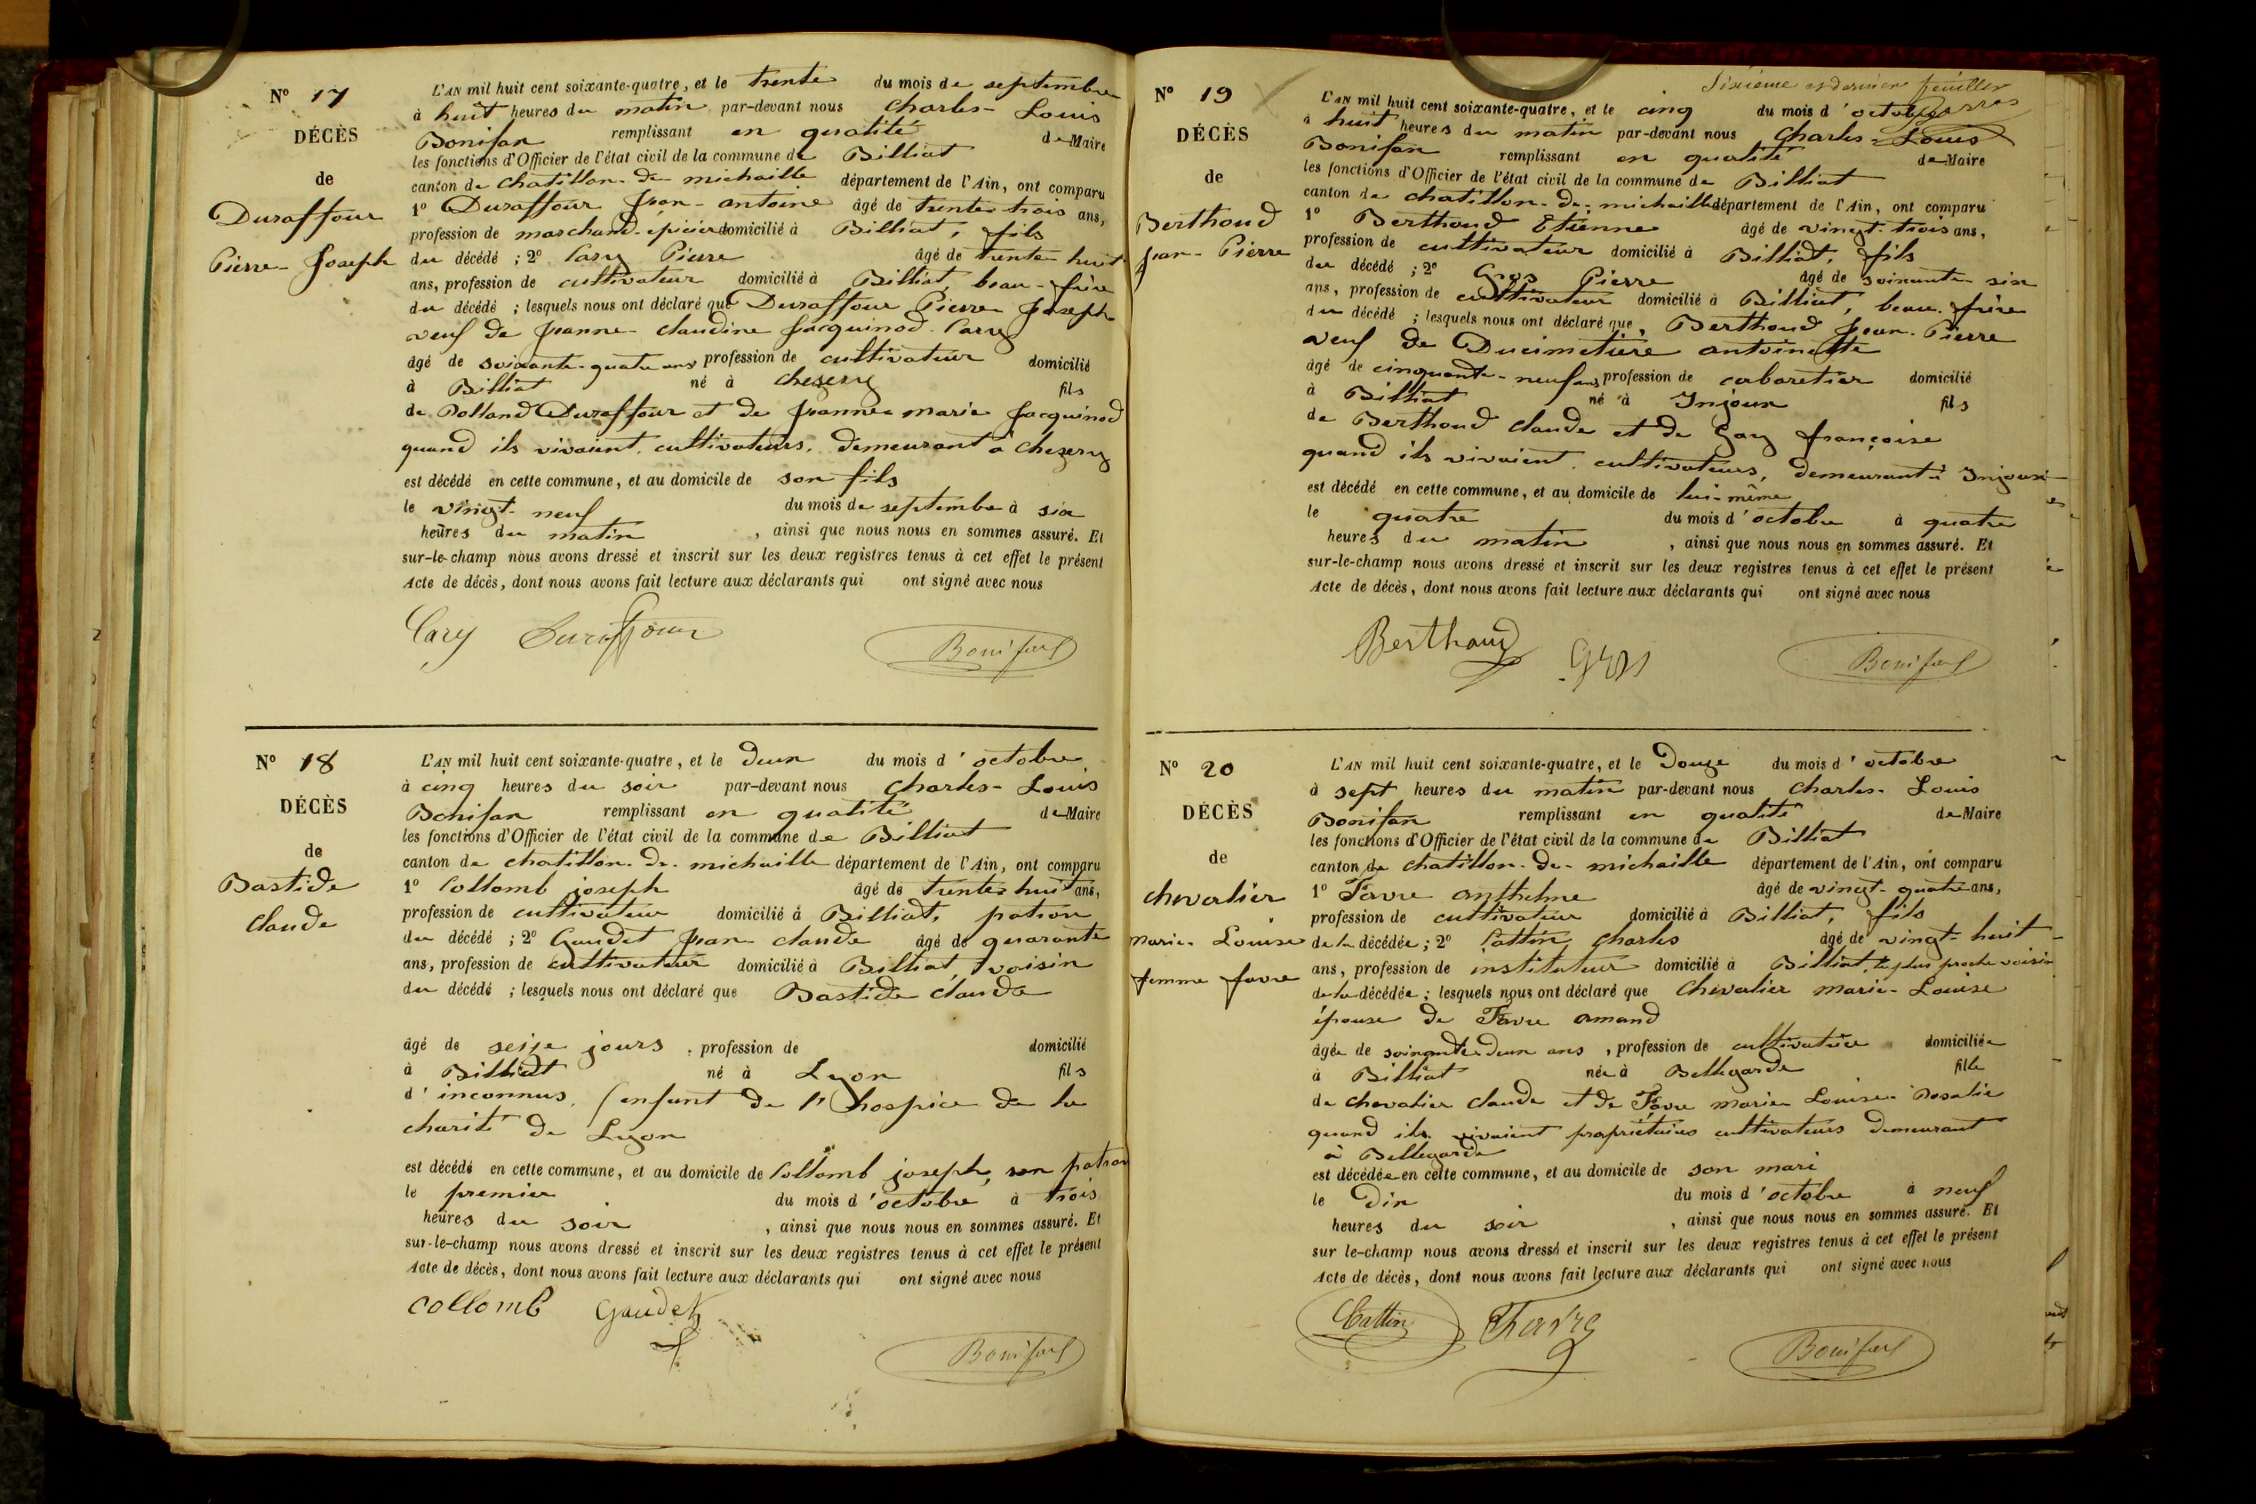 N° 17
DÉCÈS
de
Duraffour
Pierre-Joseph
L'AN mil huit cent soixante-quatre, et le trente du mois de septembre
à huit heures du matin par-devant nous Charles-Louis
Bonifax remplissant en qualité de Maire
les fonctions d'Officier de l'état civil de la commune de Billiat
canton de chatillon-de-michaille département de l'Ain, ont comparu
1° Duraffour Jean-antoine âgé de trente-trois ans,
profession de marchand-épicier domicilié à Billiat, fils
du décédé ; 2° Cary Pierre âgé de trente-huit
ans, profession de cultivateur domicilié à Billiat, beau-frère
du décédé ; lesquels nous ont déclaré que Duraffour Pierre Joseph
veuf de Jeanne-claudine Jacquinod-Carry
âgé de soixante-quatre ans profession de cultivateur domicilié
à Billiat né à chezery fils
de Rolland Duraffour et de Jeanne-marie Jacquinod
quand ils vivaient, cultivateurs, demeurant à chezery
est décédé en cette commune, et au domicile de son fils
le vingt-neuf du mois de septembre à six
heures du matin , ainsi que nous nous en sommes assuré. Et
sur-le-champ nous avons dressé et inscrit sur les deux registres tenus à cet effet le présent
Acte de décès, dont nous avons fait lecture aux déclarants qui ont signé avec nous
Cary Duraffour Bonifax
N° 18
DÉCÈS
de
Bastide
Claude
L'AN mil huit cent soixante-quatre, et le deux du mois d'octobre
à cinq heures du soir par-devant nous Charles-Louis
Bonifax remplissant en qualité de Maire
les fonctions d'Officier de l'état civil de la commune de Billiat
canton de chatillon-de-michaille département de l'Ain, ont comparu
1° Collomb joseph âgé de trente-huit ans,
profession de cultivateur domicilié à Billiat, patron
du décédé ; 2° Gaudet Jean claude âgé de quarante
ans, profession de cultivateur domicilié à Billiat, voisin
du décédé ; lesquels nous ont déclaré que Bastide claude
âgé de seize jours , profession de domicilié
à Billiat né à Lyon fils
d'inconnus, (enfant de l'hospice de la
charité de Lyon
est décédé en cette commune, et au domicile de Collomb joseph, son patron
le premier du mois d'octobre à trois
heures du soir , ainsi que nous nous en sommes assuré. Et
sur-le-champ nous avons dressé et inscrit sur les deux registres tenus à cet effet le présent
Acte de décès, dont nous avons fait lecture aux déclarants qui ont signé avec nous
Collomb Gaudet Bonifax
Sixième et dernier feuillet
N° 19
DÉCÈS
de
Berthoud
Jean-Pierre
L'AN mil huit cent soixante-quatre, et le cinq du mois d'octobre
à huit heures du matin par-devant nous Charles-Louis
Bonifax remplissant en qualité de Maire
les fonctions d'Officier de l'état civil de la commune de Billiat
canton de chatillon-de-michaille département de l'Ain, ont comparu
1° Berthoud Etienne âgé de vingt-trois ans,
profession de cultivateur domicilié à Billiat, fils
du décédé ; 2° Gros Pierre âgé de soixante-six
ans, profession de cultivateur domicilié à Billiat, beau-frère
du décédé ; lesquels nous ont déclaré que, Berthoud Jean-Pierre
veuf de Ducimetière antoinette
âgé de cinquante-neuf ans profession de cabaretier domicilié
à Billiat né à Injoux fils
de Berthoud claude et de Gay françoise
quand ils vivaient, cultivateurs, demeurant à Injoux
est décédé en cette commune, et au domicile de lui-même
le quatre du mois d'octobre à quatre
heures du matin , ainsi que nous nous en sommes assuré. Et
sur-le-champ nous avons dressé et inscrit sur les deux registres tenus à cet effet le présent
Acte de décès, dont nous avons fait lecture aux déclarants qui ont signé avec nous
Berthoud Gros Bonifax
N° 20
DÉCÈS
de
chevalier
Marie-Louise
femme favre
L'AN mil huit cent soixante-quatre, et le Douze du mois d'octobre
à sept heures du matin par-devant nous Charles-Louis
Bonifax remplissant en qualité de Maire
les fonctions d'Officier de l'état civil de la commune de Billiat
canton de chatillon-de-michaille département de l'Ain, ont comparu
1° Favre anthelme âgé de vingt-quatre ans,
profession de cultivateur domicilié à Billiat, fils
de la décédée ; 2° Cattin, charles âgé de vingt-huit
ans, profession de instituteur domicilié à Billiat, le plus proche voisin
de la décédée ; lesquels nous ont déclaré que Chevalier marie-Louise
épouse de Favre amand
âgée de soixante-deux ans , profession de cultivatrice domiciliée
à Billiat née à Bellegarde fille
de chevalier claude et de Favre marie Louise-Rosalie
quand ils vivaient propriétaires cultivateurs demeurant
à Bellegarde
est décédée en cette commune, et au domicile de son mari
le Dix du mois d'octobre à neuf
heures du soir , ainsi que nous nous en sommes assuré. Et
sur le-champ nous avons dressé et inscrit sur les deux registres tenus à cet effet le présent
Acte de décès, dont nous avons fait lecture aux déclarants qui ont signé avec nous
Cattin Favre Bonifax